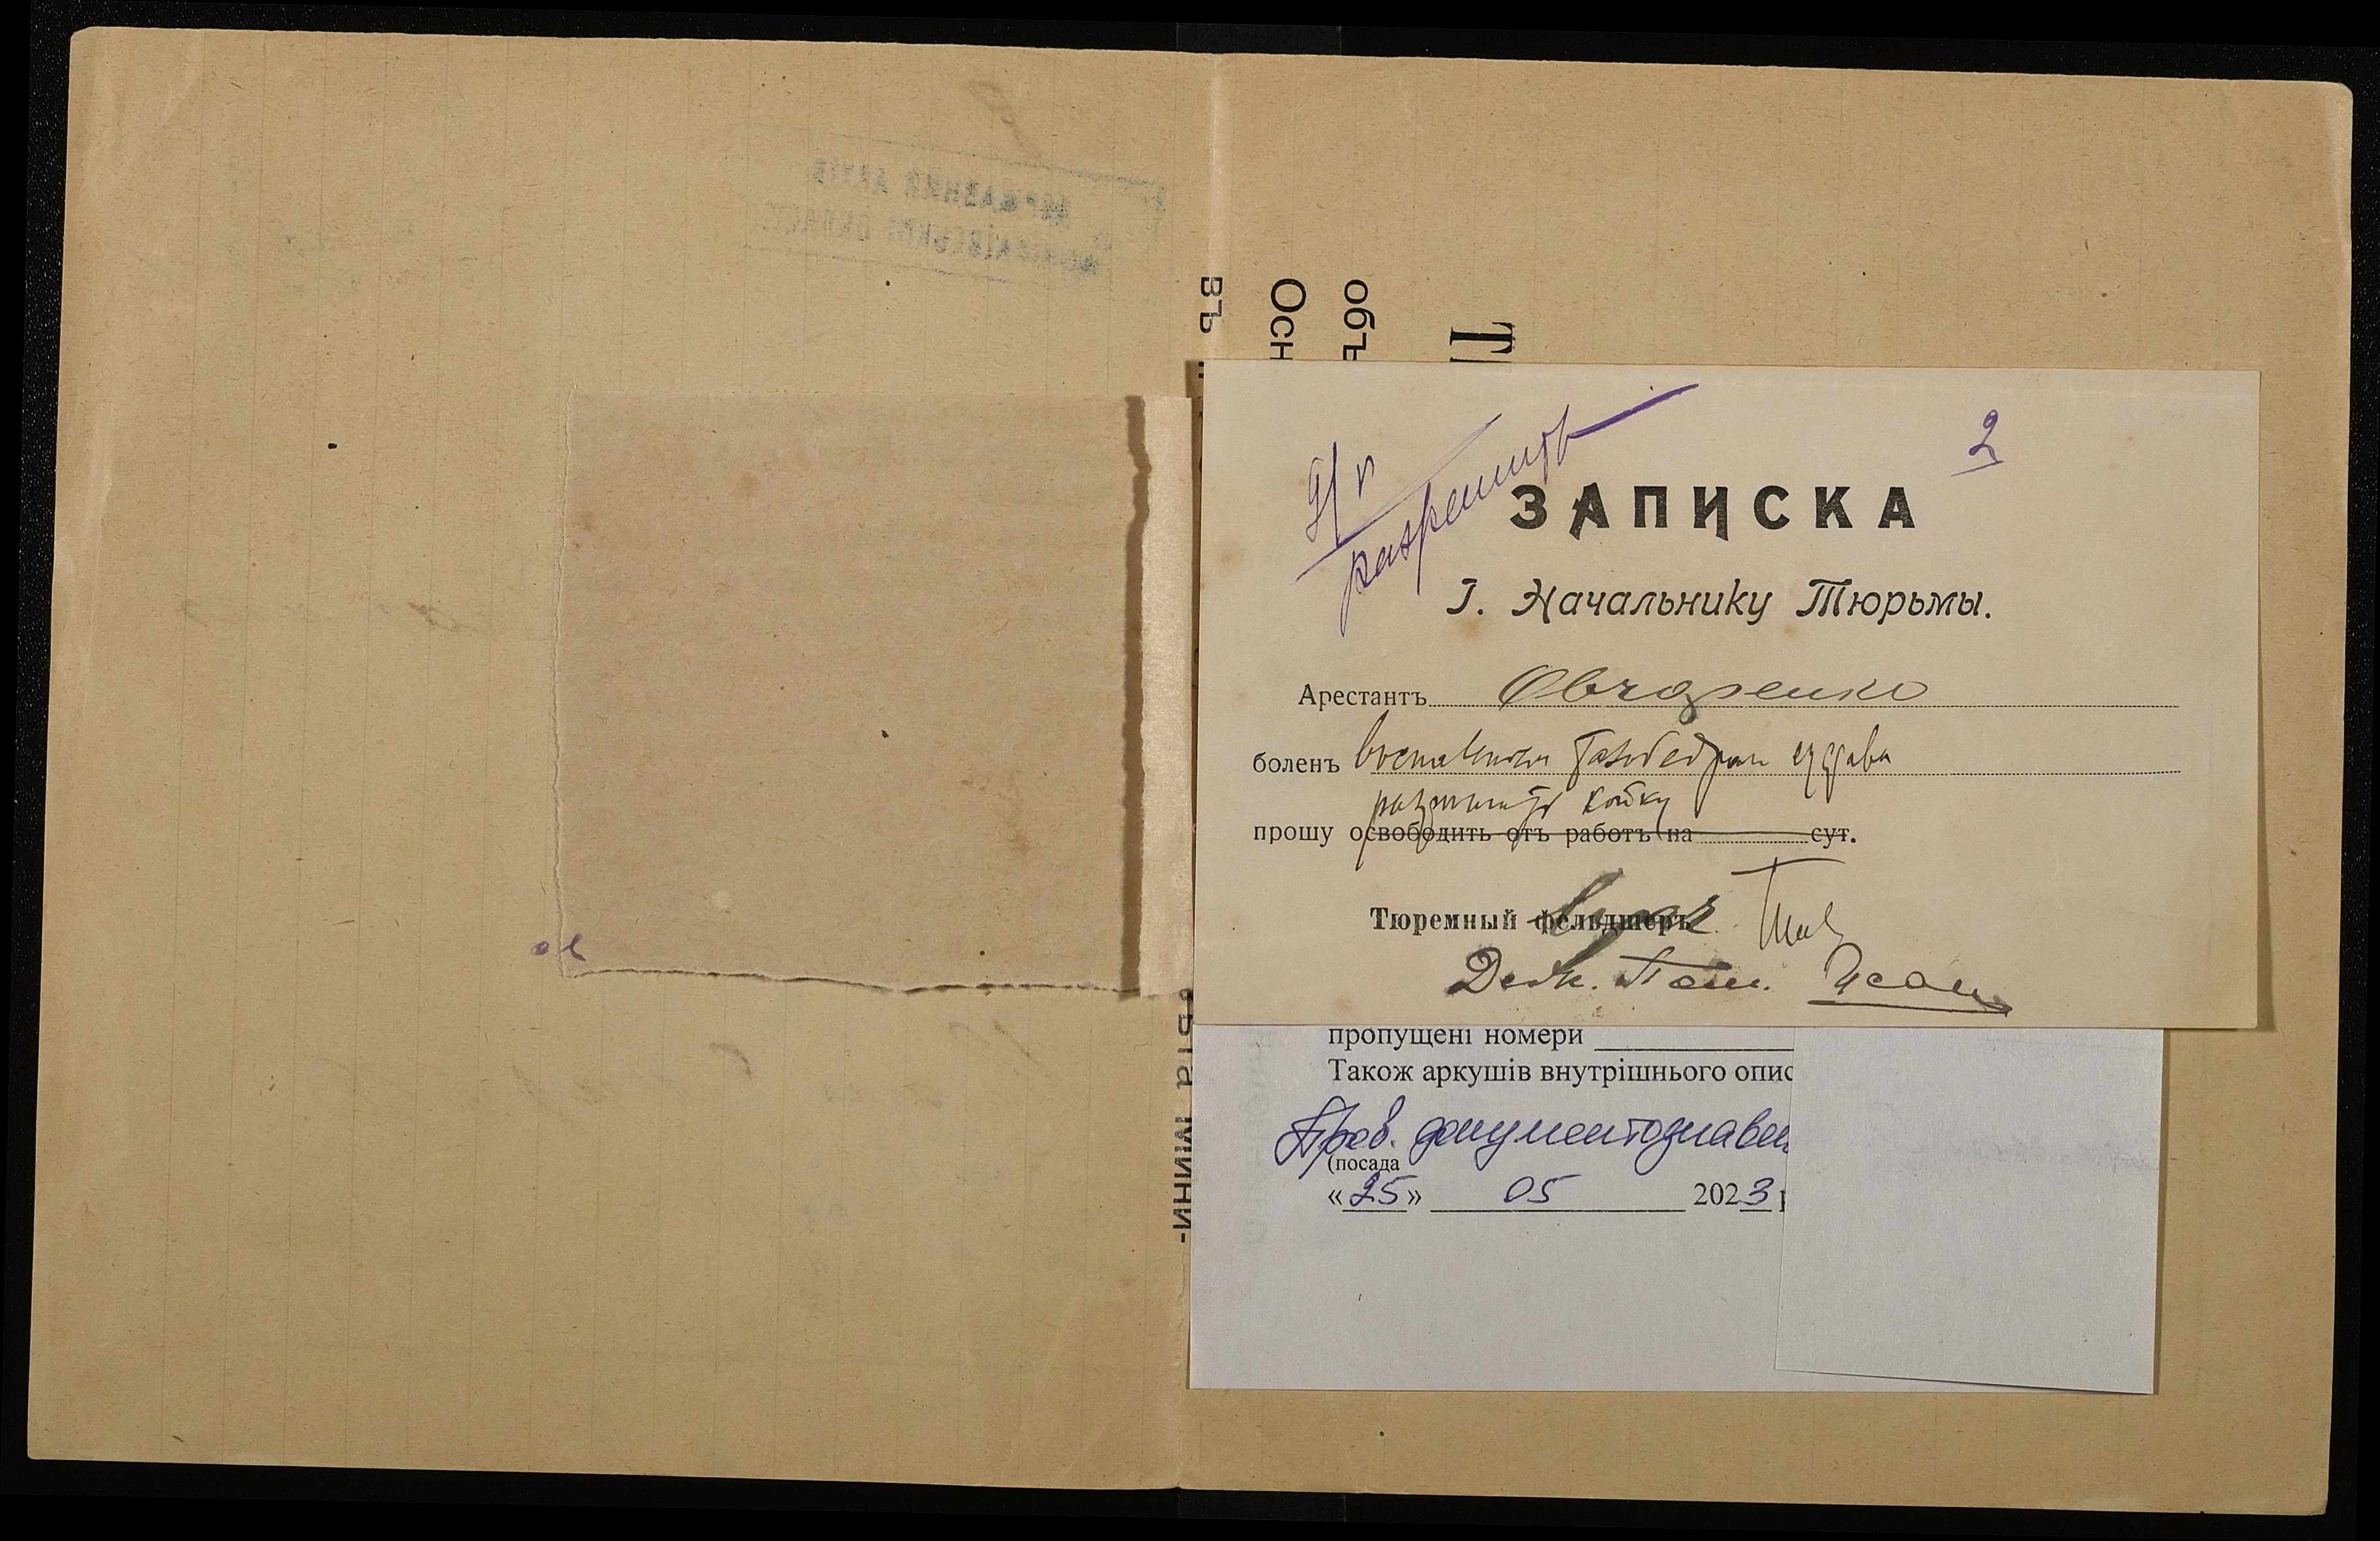 ДЕРЖАВНИЙ АРХІВ
въ
Осн
объ
2
9/V
разрешить
ЗАПИСКА
Г. Начальнику Тюрьмы.
Арестантъ Овчаренко
боленъ воспаленіем тазобедрен сустава
разрешить койку
прошу освободить отъ работъ на сут.
Тюремный фельдшеръ врач
Деж. Пом.
пропущені номери
Також аркушів внутрішнього опис
Пров. документознавец
(посада
«25» 05 2023 р
мини-